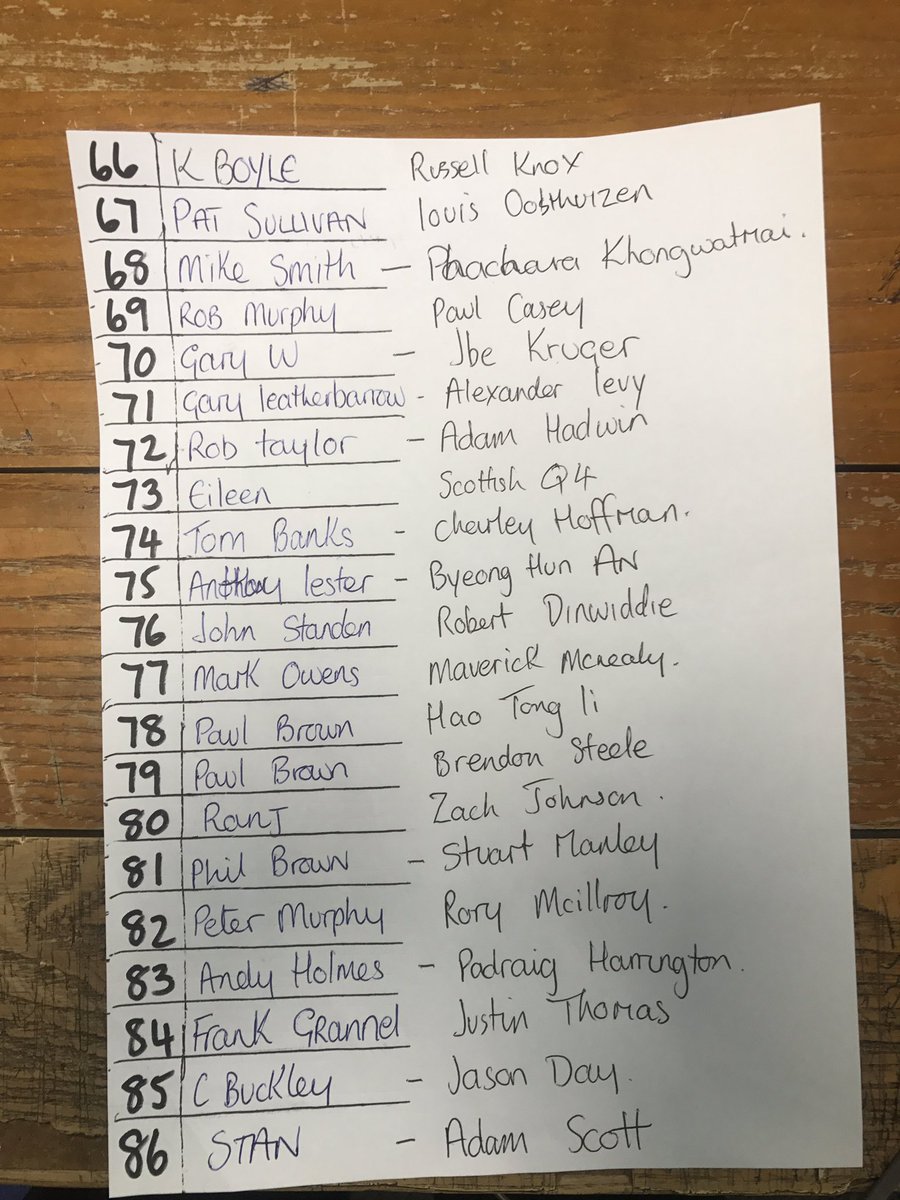 66 K BOYLE Russell Knox
67 PAT SULLIVAN louis Oosthuizen
68 Mike Smith - Phachara Khongwatmai.
69 ROB Murphy Paul Casey
70 Gary W - Jbe Kruger
71 Gary leatherbarrow - Alexander levy
72 Rob taylor - Adam Hadwin
73 Eileen Scottish Q4
74 Tom Banks - Charley Hoffman.
75 Anthony lester - Byeong Hun AN
76 John Standen Robert Dinwiddie
77 Mark Owens Maverick Mcnealy.
78 Paul Brown Hao Tong li
79 Paul Brown Brendon Steele
80 RanJ Zach Johnson.
81 Phil Brown - Stuart Manley
82 Peter Murphy Rory Mcillroy.
83 Andy Holmes - Padraig Harrington.
84 Frank GRannel Justin Thomas
85 C Buckley - Jason Day.
86 STAN - Adam Scott